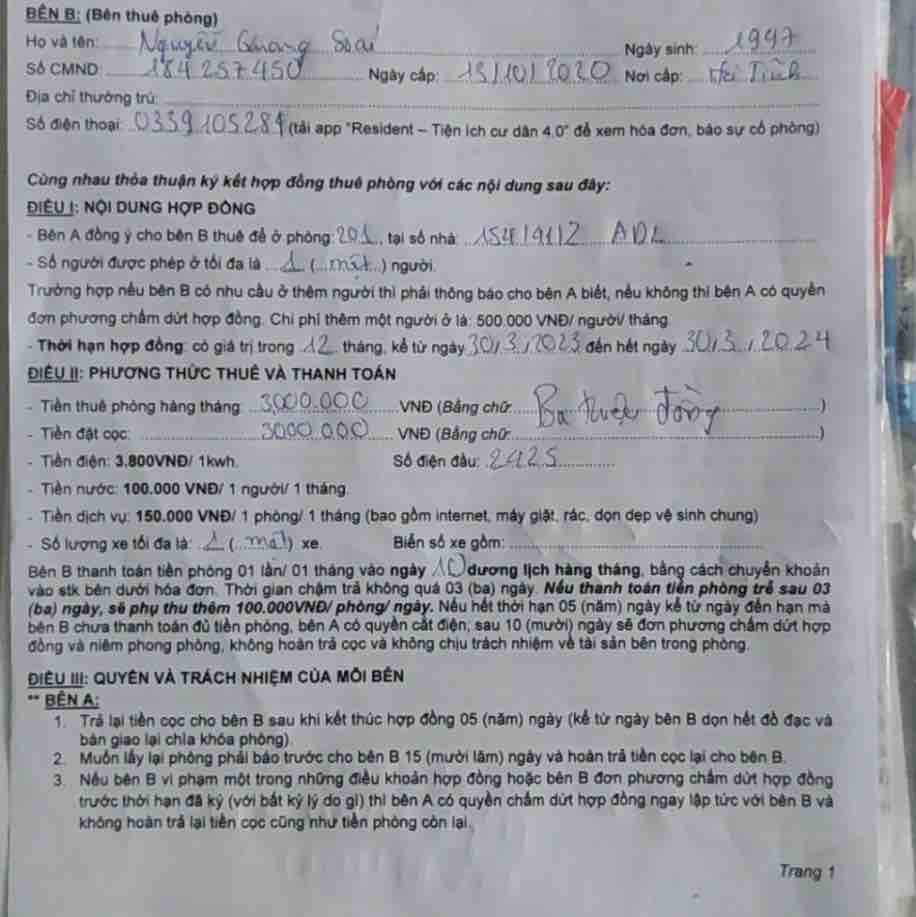 BÊN B: (Bên thuê phòng)
Họ và tên: Nguyễn Quang Soái Ngày sinh: 1997
Số CMND: 184257450 Ngày cấp: 13/10/2020 Nơi cấp: Hà Tĩnh
Địa chỉ thường trú:
Số điện thoại: 0339105289 (tải app "Resident – Tiện ích cư dân 4.0" để xem hóa đơn, báo sự cố phòng)
Cùng nhau thỏa thuận ký kết hợp đồng thuê phòng với các nội dung sau đây:
ĐIỀU I: NỘI DUNG HỢP ĐỒNG
- Bên A đồng ý cho bên B thuê để ở phòng: 201, tại số nhà: 154/9/12 ADL
- Số người được phép ở tối đa là 1 (một) người.
Trường hợp nếu bên B có nhu cầu ở thêm người thì phải thông báo cho bên A biết, nếu không thì bên A có quyền
đơn phương chấm dứt hợp đồng. Chi phí thêm một người ở là: 500.000 VNĐ/ người/ tháng
- Thời hạn hợp đồng: có giá trị trong 12 tháng, kể từ ngày 30/3/2023 đến hết ngày 30/3/2024
ĐIỀU II: PHƯƠNG THỨC THUÊ VÀ THANH TOÁN
- Tiền thuê phòng hàng tháng: 3000.000 VNĐ (Bằng chữ: Ba triệu đồng)
- Tiền đặt cọc: 3000.000 VNĐ (Bằng chữ: )
- Tiền điện: 3.800VNĐ/ 1kwh. Số điện đầu: 2425
- Tiền nước: 100.000 VNĐ/ 1 người/ 1 tháng.
- Tiền dịch vụ: 150.000 VNĐ/ 1 phòng/ 1 tháng (bao gồm internet, máy giặt, rác, dọn dẹp vệ sinh chung)
- Số lượng xe tối đa là: 1 (một) xe. Biển số xe gồm:
Bên B thanh toán tiền phòng 01 lần/ 01 tháng vào ngày 10 dương lịch hàng tháng, bằng cách chuyển khoản
vào stk bên dưới hóa đơn. Thời gian chậm trả không quá 03 (ba) ngày. Nếu thanh toán tiền phòng trễ sau 03
(ba) ngày, sẽ phụ thu thêm 100.000VNĐ/ phòng/ ngày. Nếu hết thời hạn 05 (năm) ngày kể từ ngày đến hạn mà
bên B chưa thanh toán đủ tiền phòng, bên A có quyền cắt điện; sau 10 (mười) ngày sẽ đơn phương chấm dứt hợp
đồng và niêm phong phòng, không hoàn trả cọc và không chịu trách nhiệm về tài sản bên trong phòng.
ĐIỀU III: QUYỀN VÀ TRÁCH NHIỆM CỦA MỖI BÊN
** BÊN A:
1. Trả lại tiền cọc cho bên B sau khi kết thúc hợp đồng 05 (năm) ngày (kể từ ngày bên B dọn hết đồ đạc và
bàn giao lại chìa khóa phòng).
2. Muốn lấy lại phòng phải báo trước cho bên B 15 (mười lăm) ngày và hoàn trả tiền cọc lại cho bên B.
3. Nếu bên B vi phạm một trong những điều khoản hợp đồng hoặc bên B đơn phương chấm dứt hợp đồng
trước thời hạn đã ký (với bất kỳ lý do gì) thì bên A có quyền chấm dứt hợp đồng ngay lập tức với bên B và
không hoàn trả lại tiền cọc cũng như tiền phòng còn lại.
Trang 1